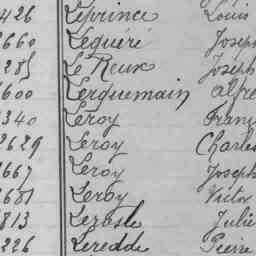 426 Leprince Louis
2660 Lequéré Joseph
285 Le Reux Joseph
600 Lerquemain Alfre
340 Leroy Franç
2629 Leroy Charles
2667 Leroy Joseph
2681 Leroy Victor
813 Julie
226 Leredde Pierre